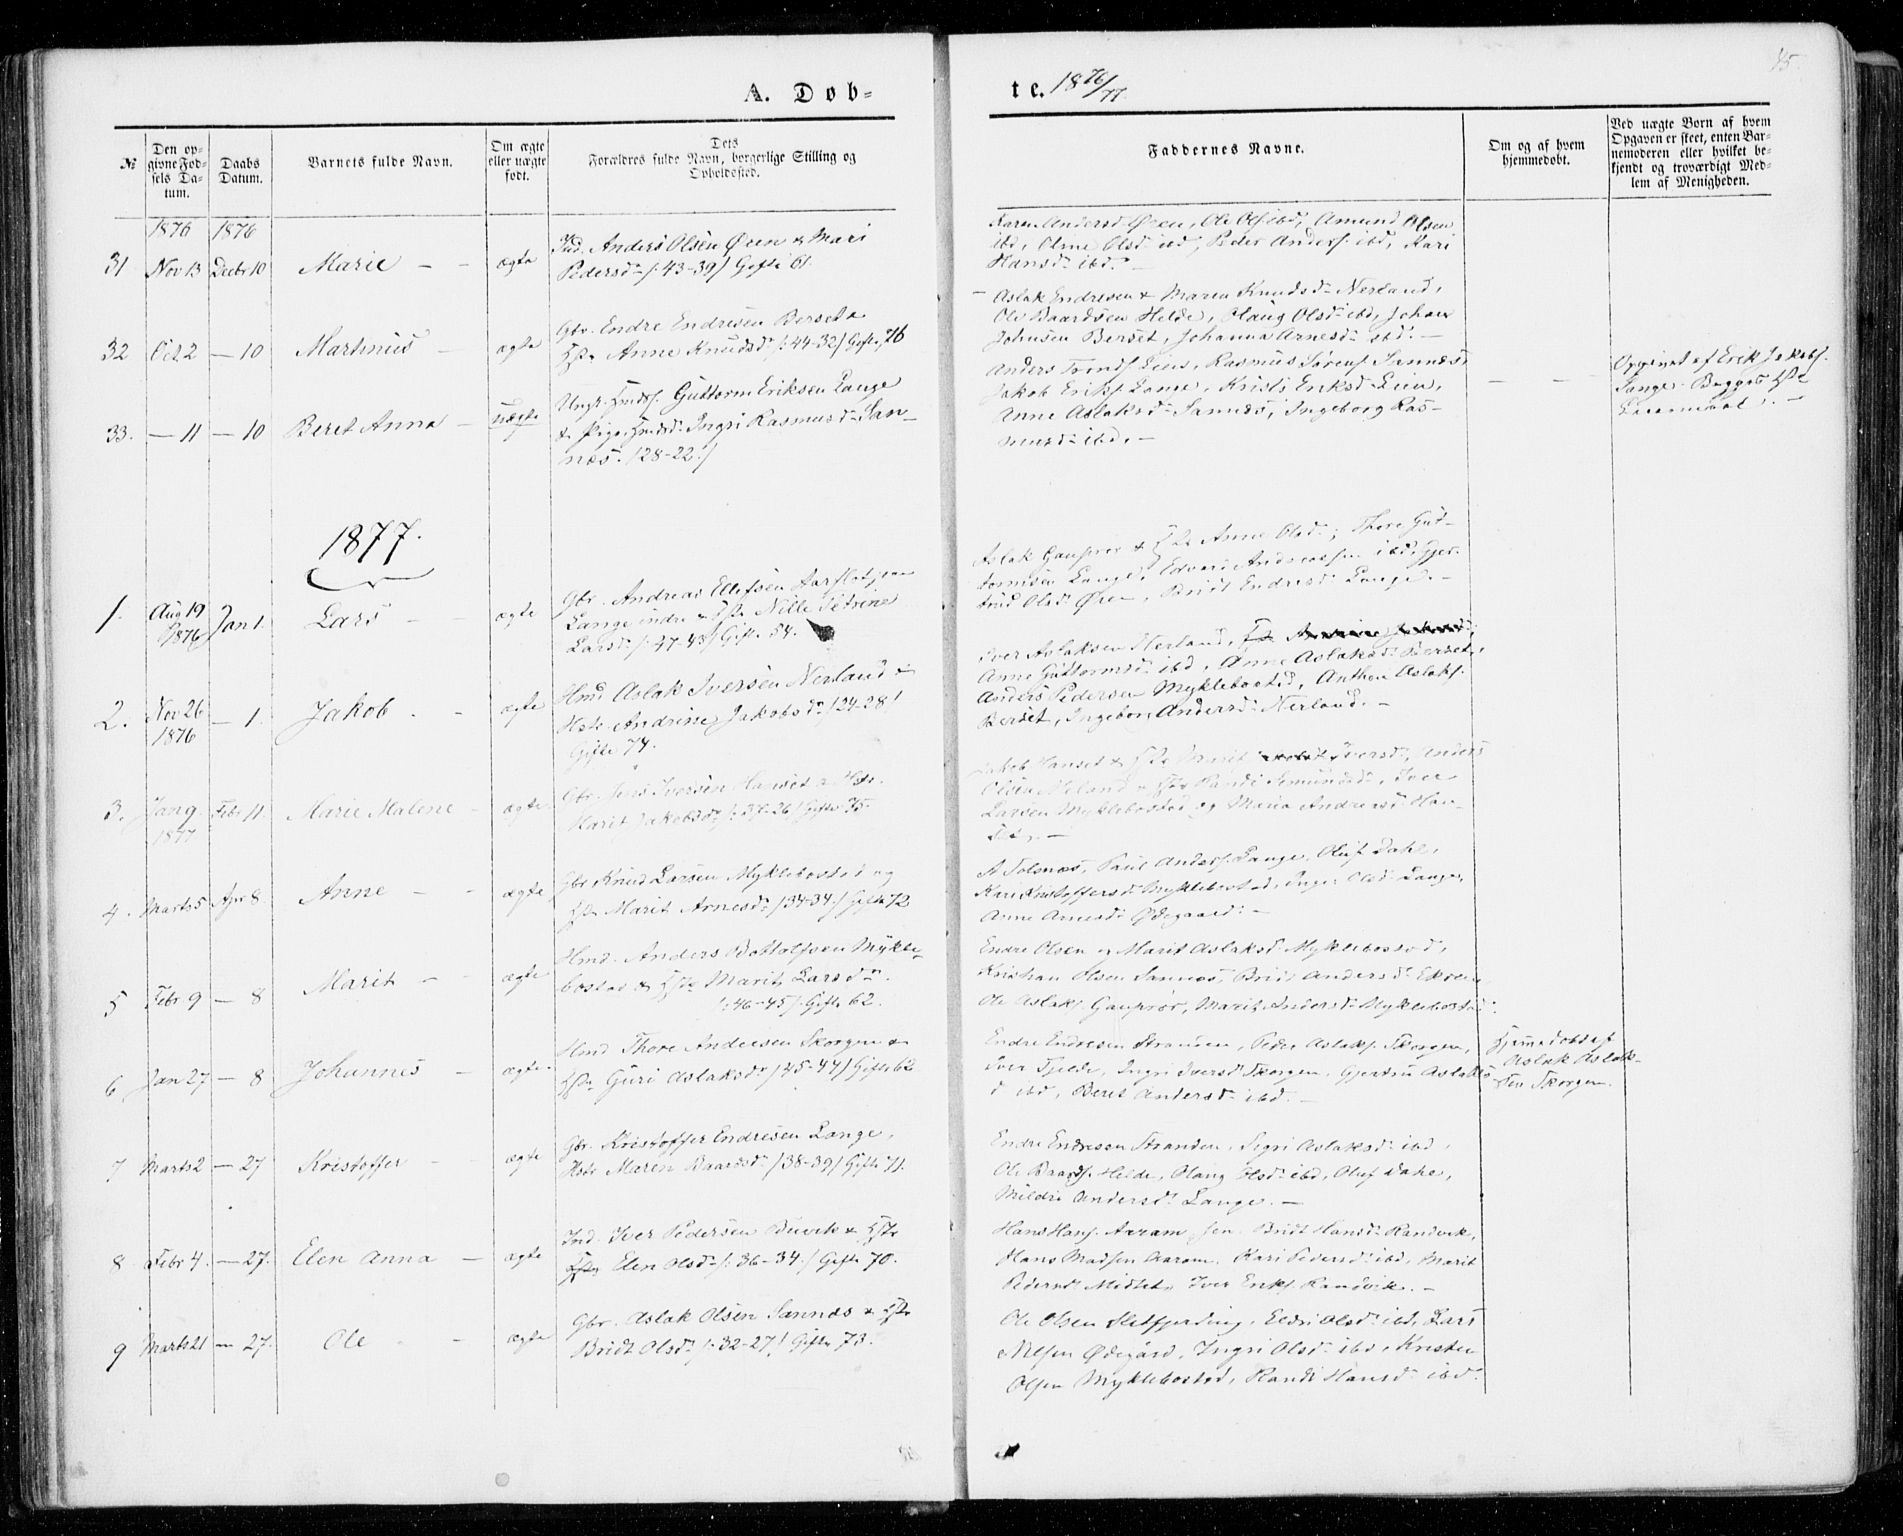 45.
A. Døb-
te. 1876/77.
№
Den op-
givne Fød-
sels Da-
tum.
Daabs
Datum.
Barnets fulde Navn.
Om ægte
eller uægte
født.
Dets
Forældres fulde Navn, borgerlige Stilling og
Opholdssted.
Faddernes Navne.
Om og af hvem
hjemmedøbt.
Ved uægte Børn af hvem
Opgaven er skeet, enten Bar-
nemoderen eller hvilket be-
kjendt og troværdigt Med-
lem af Menigheden.
1876 1876
31 Nov 13 Decbr 10 Marie - - ægte
Ind. Anders Olsen Øren & Mari
Pedersd /: 43-39/ Gifte 61.
Karen Andersd Øren, Ole Ols ibd, Amund Olsen
ibd, Arne Olsd ibd, Peder Anders. ibd, Kari
Hansd ibd. -
32 Oct 2 - 10 Martinus - ægte
Gbr. Endre Endresen Berset &
Hst Anne Knudsd /: 44-32/ Gifte 76
Aslak Endresen & Maren Knudsd Nerland,
Ole Baardsen Helde, Olaug Olsd ibd, Johan
Johnsen Berset, Johanna Arnesd ibd. -
33. - 11 - 10 Beret Anna - uægte
Ungk. Guttorm Eriksen Lange
& Pige Ingri Rasmusd San-
næs. /28-22:/
Anders Lien, Rasmus Sørens Sannæs,
Jakob Eriks Lange, Kristi Eriksd Lien,
Anne Aslaksd Sannæs, Ingeborg Ras-
musd ibd. -
Opgivet af Erik Jakobs.
Lange. Begges 1ste
Leiermaal. -
1877.
1. Aug 19 1876 Jan 1. Lars - - ægte
Gbr. Andreas Ellefsen
Lange indre & Hst Nille Petrine
Larsd /: 47-43/ Gifte 54.
Aslak Gauprør & Hst Anne Olsd, Thore Gut-
tormsen Lange, Edvard Andreassen ibd, Gjer-
trud Olsd Øren, Bridt Endresd Lange. -
2. Nov 26 1876 - 1. Jakob - - ægte
Hmd Aslak Iversen Nerland &
Hst Andrine Jakobsd /24-28/
Gifte 74.
Iver Aslaksen Nerland,
Anne Guttormsd ibd, Anne Aslaksd Berset,
Anders Pedersen Myklebostad, Anthon Aslaks.
Berset, Ingeborg Andersd Nerland. -
3. Jan 9 1877 Febr 11. Marie Malene - ægte
Gbr. Jens Iversen Hanset & Hst.
Marit Jakobsd /: 38-26/ Gifte 75.
Jakob Hanset & Hst Marit Iversd, Anders
Olsen Meland & Hst Randi Amundsd, Iver
Larsen Myklebostad og Maria Andersd Han-
set. -
4. Marts 5 Apr 8. Anne - - ægte
Gbr Knud Larsen Myklebostad og
Hst Marit Arnesd /34-34/ Gifte 72
A Tolnæs, Paul Anders. Lange, Oluf Dahl,
Kari Kristoffersd Myklebostad, Inger Olsd Lange,
Anne Arnesd Ødegaard. -
5 Febr 9 - 8 Marit - - ægte
Hmd. Anders Bottolfsen Mykle-
bostad & Hst Marit Larsd
/: 46-45/ Gifte 62.
Endre Olsen og Marit Aslaksd Myklebostad,
Kristian Olsen Sannæs, Bridt Andersd Ekren,
Ole Aslaks Gauprør, Marit Andersd Myklebostad.
6 Jan 27 - 8 Johannes - ægte.
Hmd Thore Andersen Skorgen &
Hst Guri Aslaksd /45-44/ Gifte 62
Endre Endresen Stranden, Peder Aslaks. Skorgen,
Iver Tjelde, Ingri Iversd Skorgen, Gjertru Aslaks
d ibd, Beret Andersd ibd. -
Hjemmedøbt af
Aslak Aslak-
sen Skorgen.
7 Marts 2 - 27 Kristoffer - ægte
Gbr. Kristoffer Endresen Lange,
Hst Maren Baardsd /38-39/ Gifte 71.
Endre Endresen Stranden, Sigri Aslaksd ibd,
Ole Baards. Helde, Olaug Olsd ibd, Oluf Dahl,
Mildri Andersd Lange. -
8 Febr 4. - 27. Elen Anna - ægte
Ind. Iver Pedersen Buvik & Hst
Elen Olsd /: 36-34./ Gifte 70.
Hans Hans. Aaram sen. Bridt Hansd Randvik,
Hans Madsen Aaram, Kari Pedersd ibd, Marit
Pedersd Midtet, Iver Eriks. Randvik. -
9 Marts 21 - 27. Ole - - ægte
Gbr. Aslak Olsen Sannæs & Hst
Bridt Olsd /: 32-27/ Gifte 73.
Ole Olsen Sletfjerding, Eldri Olsd ibd, Lars
Nilsen Ødegård, Ingri Olsd ibd, Kristen
Olsen Myklebostad, Randi Hansd ibd.